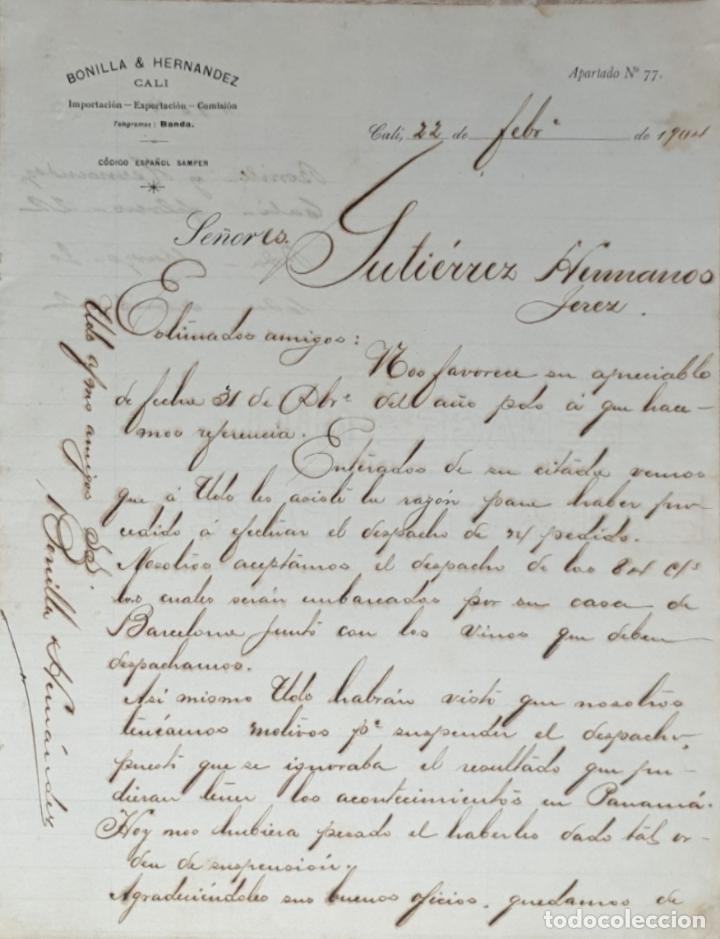 BONILLA & HERNANDEZ
CALI
Importación — Exportación — Comisión
Telegramas: Banda.
CÓDIGO ESPAÑOL SAMPER
Apartado Nº 77.
Cali, 22 de febrº de 1904
Señores.
Gutiérrez Hermanos
Jerez.
Estimados amigos:
Nos favorece su apreciable
de fecha 31 de Dbre del año pdo á que hace-
mos referencia.
Enterados de su citada vemos
que á Uds les asistió la razón para haber pro-
cedido á efectuar el despacho de n/ pedido.
Nosotros aceptamos el despacho de los 84 c/s
los cuales serán embarcados por su casa de
Barcelona junto con los vinos que deben
despacharnos.
Asi mismo Uds habrán visto que nosotros
teníamos motivos pª suspender el despacho,
puesto que se ignoraba el resultado que pu-
dieran tener los acontecimientos en Panamá.
Hoy nos hubiera pesado el haberles dado tal or-
den de suspensión y
Agradeciéndoles sus buenos oficios, quedamos de
Uds afmos amigos SS.
Bonilla & Hernández
todocoleccion